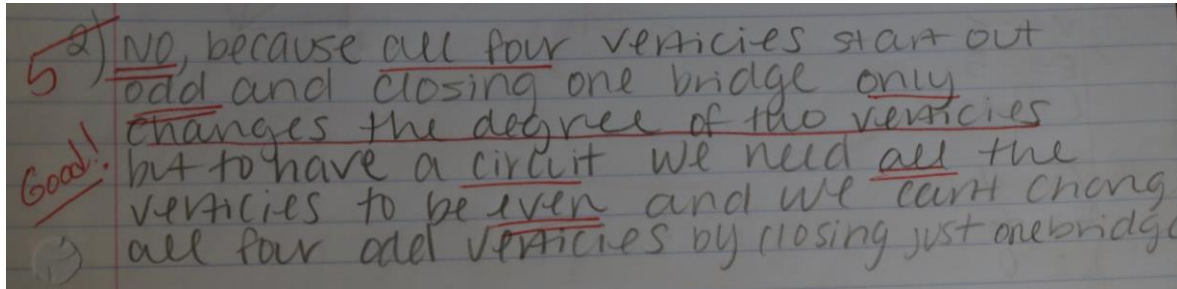 5 2) NO, because all four verticies start out
odd and closing one bridge only
changes the degree of two verticies
Good! but to have a circuit we need all the
verticies to be even and we can't chang
all four odd verticies by closing just one bridge